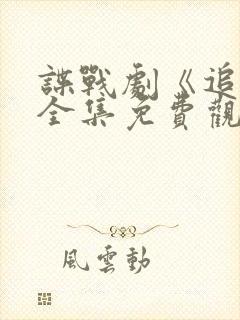 諜戰劇《追
全集免費觀
風雲動